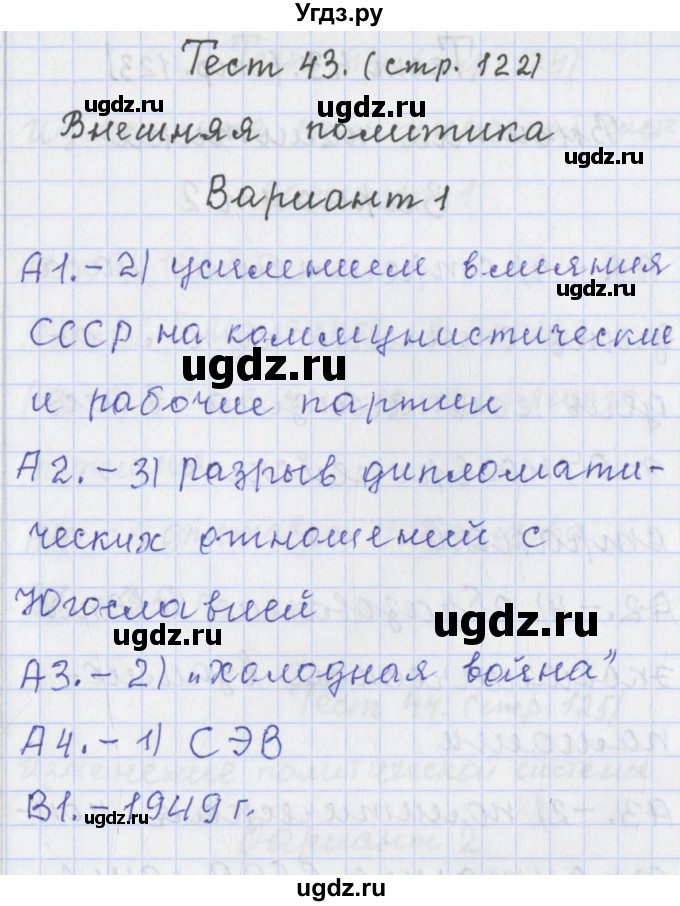 Угдз.ру
Тест 43. (стр. 122)
ugdz.ru
ugdz.ru
Внешняя политика
ugdz.ru
Вариант 1
А1. – 2) усилением влияния
ugdz.ru
СССР на коммунистические
ugdz.ru
и рабочие партии
А2. – 3) разрыв дипломати-
ческих отношений с
Югославией
ugdz.ru
ugdz.ru
А3. – 2) „холодная война”
А4. – 1) СЭВ
В1. – 1949 г.
ugdz.ru
ugdz.ru